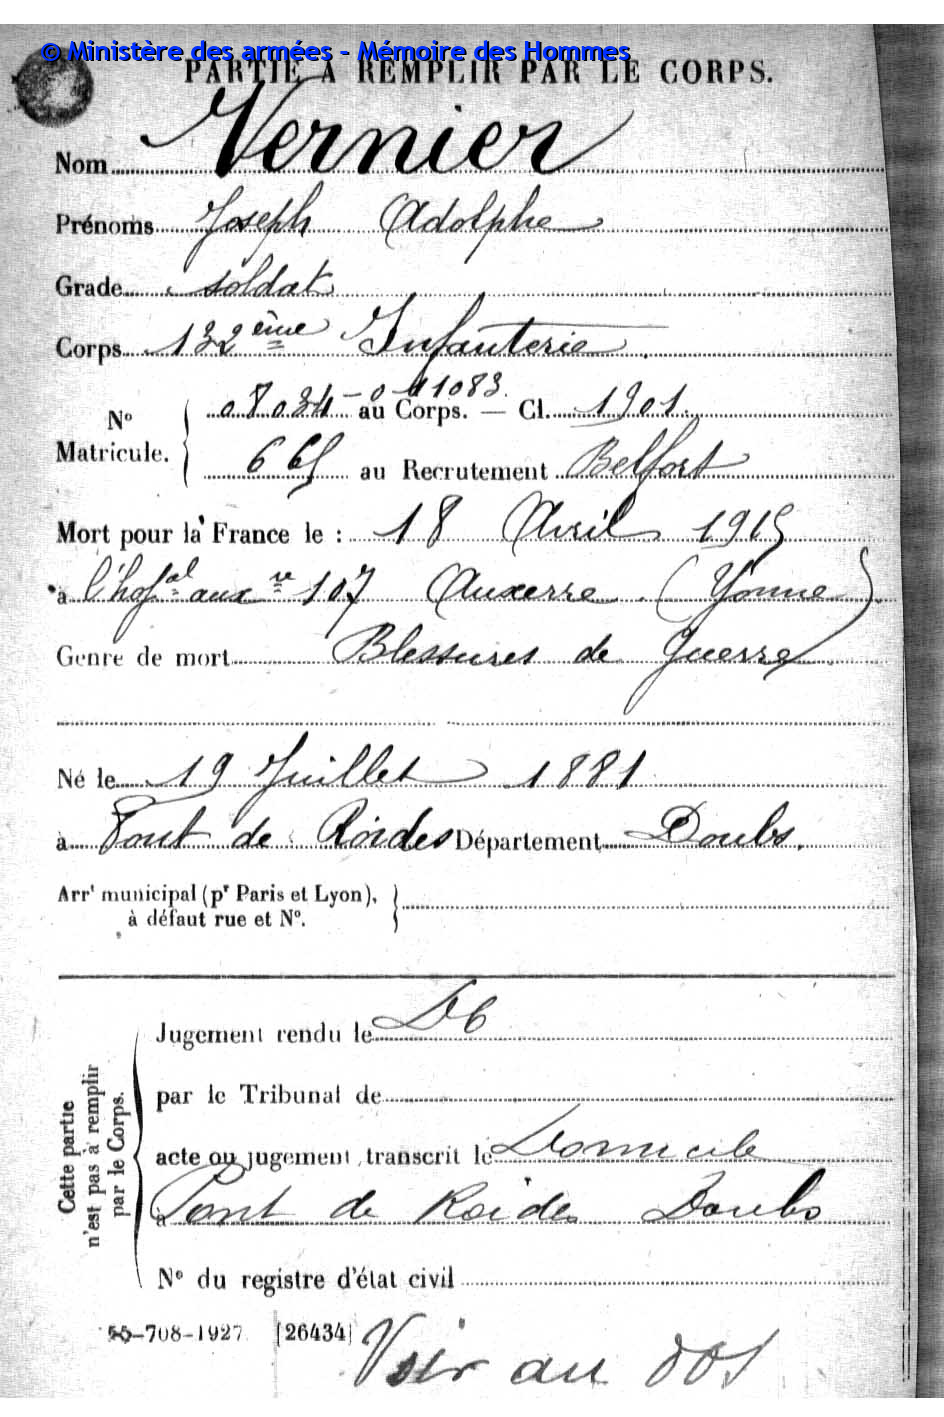 © Ministère des armées - Mémoire des Hommes
PARTIE A REMPLIR PAR LE CORPS.
Nom Vernier
Prénoms Joseph Adolphe
Grade soldat
Corps 132ème Infanterie
08034-0-11083
N° Matricule. { au Corps. — Cl. 1901
665 au Recrutement Belfort
Mort pour la France le : 18 Avril 1915
à l'hopal auxre 107 Auxerre (Yonne)
Genre de mort Blessures de Guerre
Né le 19 Juillet 1881
à Pont de Roides Département Doubs.
Arrt municipal (pr Paris et Lyon),
à défaut rue et N°.
Cette partie
n'est pas à remplir
par le Corps.
Jugement rendu le
par le Tribunal de
acte ou jugement transcrit le Domicile
à Pont de Roides Doubs
N° du registre d'état civil
55-708-1927 [26434]
Voir au dos